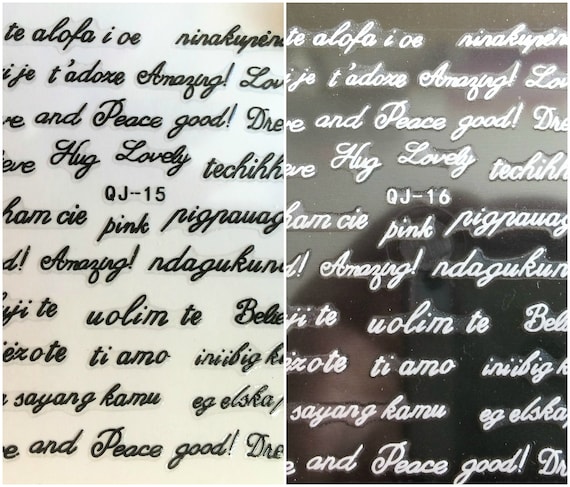 te alofa i oe ninakupen
i je t'adoze Amazing! Lov
ve and Peace good! Dre
eve Hug Lovely techihh
QJ-15
ham cie pink pigpauag
d! Amazing! ndagukun
uji te uolim te Belie
iezote ti amo iniibig k
sayang kamu eg elska
ve and Peace good! Dre
te alofa i oe ninakupen
i je t'adoze Amazing! Lov
ve and Peace good! Dre
eve Hug Lovely techihh
QJ-16
ham cie pink pigpauag
d! Amazing! ndagukun
uji te uolim te Bel
iezote ti amo iniibig k
sayang kamu eg elska
e and Peace good! Dre